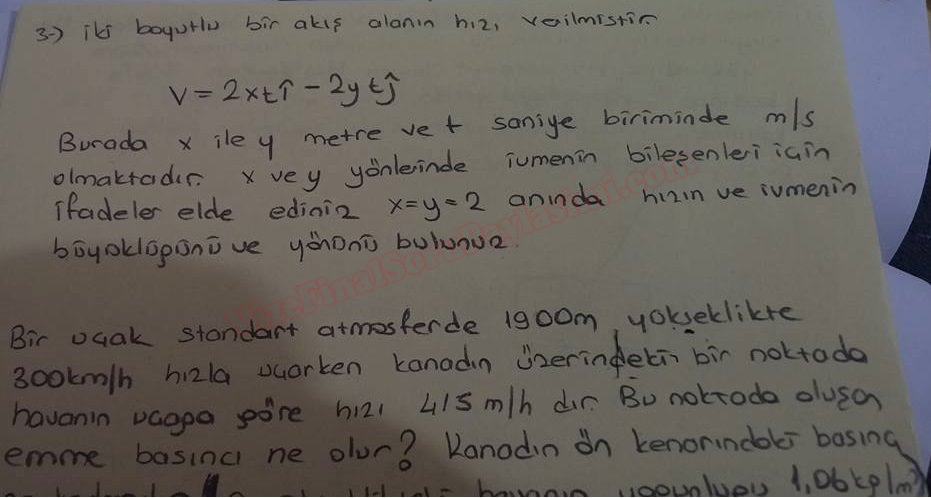 3-) iki boyutlu bir akış alanın hızı verilmiştir
V = 2xtî - 2ytĵ
Burada x ile y metre ve t saniye biriminde m/s
olmaktadır. x ve y yönlerinde ivmenin bileşenleri için
ifadeler elde ediniz x=y=2 anında hızın ve ivmenin
büyüklüğünü ve yönünü bulunuz.
Bir uçak standart atmosferde 1900m yükseklikte
300km/h hızla uçarken kanadın üzerindeki bir noktada
havanın uçağa göre hızı 415 m/h dır. Bu noktada oluşan
emme basıncı ne olur? Kanadın ön kenarındaki basınç
havanın yoğunluğu 1,06kg/m³